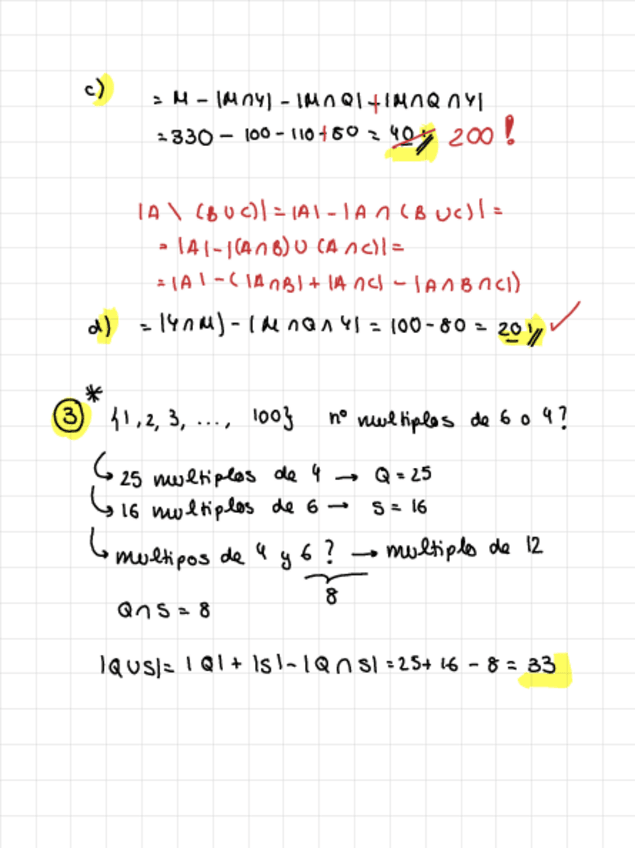 c)
= M - |M∩Y| - |M∩Q| + |M∩Q∩Y|
= 330 - 100 - 110 + 80 = 40 200!
|A \ (B∪C)| = |A| - |A∩(B∪C)| =
= |A| - |(A∩B)∪(A∩C)| =
= |A| - (|A∩B| + |A∩C| - |A∩B∩C|)
d) = |Y∩M| - |M∩Q∩Y| = 100 - 80 = 20 ✓
③* {1, 2, 3, ..., 100} nº multiplos de 6 o 4?
↳ 25 multiplos de 4 → Q = 25
↳ 16 multiplos de 6 → S = 16
↳ multipos de 4 y 6? → multiplo de 12
8
Q∩S = 8
|Q∪S| = |Q| + |S| - |Q∩S| = 25 + 16 - 8 = 33